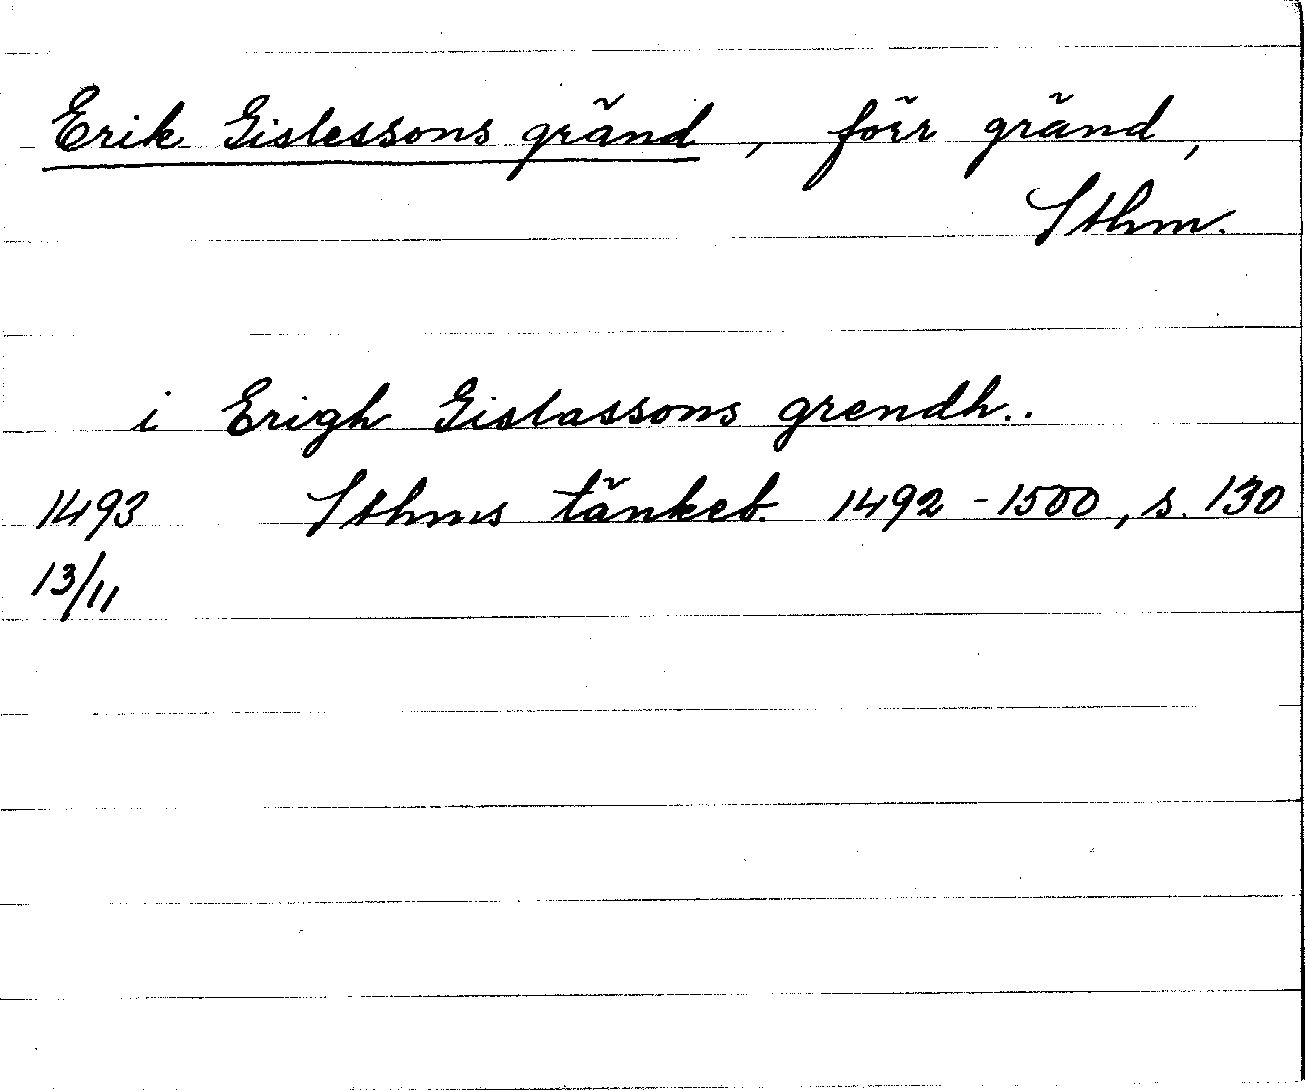 Erik Gislessons gränd, förr gränd,
Sthm.
i Erigh Gislassons grendh..
1493 Sthms tänkeb. 1492-1500, s. 130
13/11